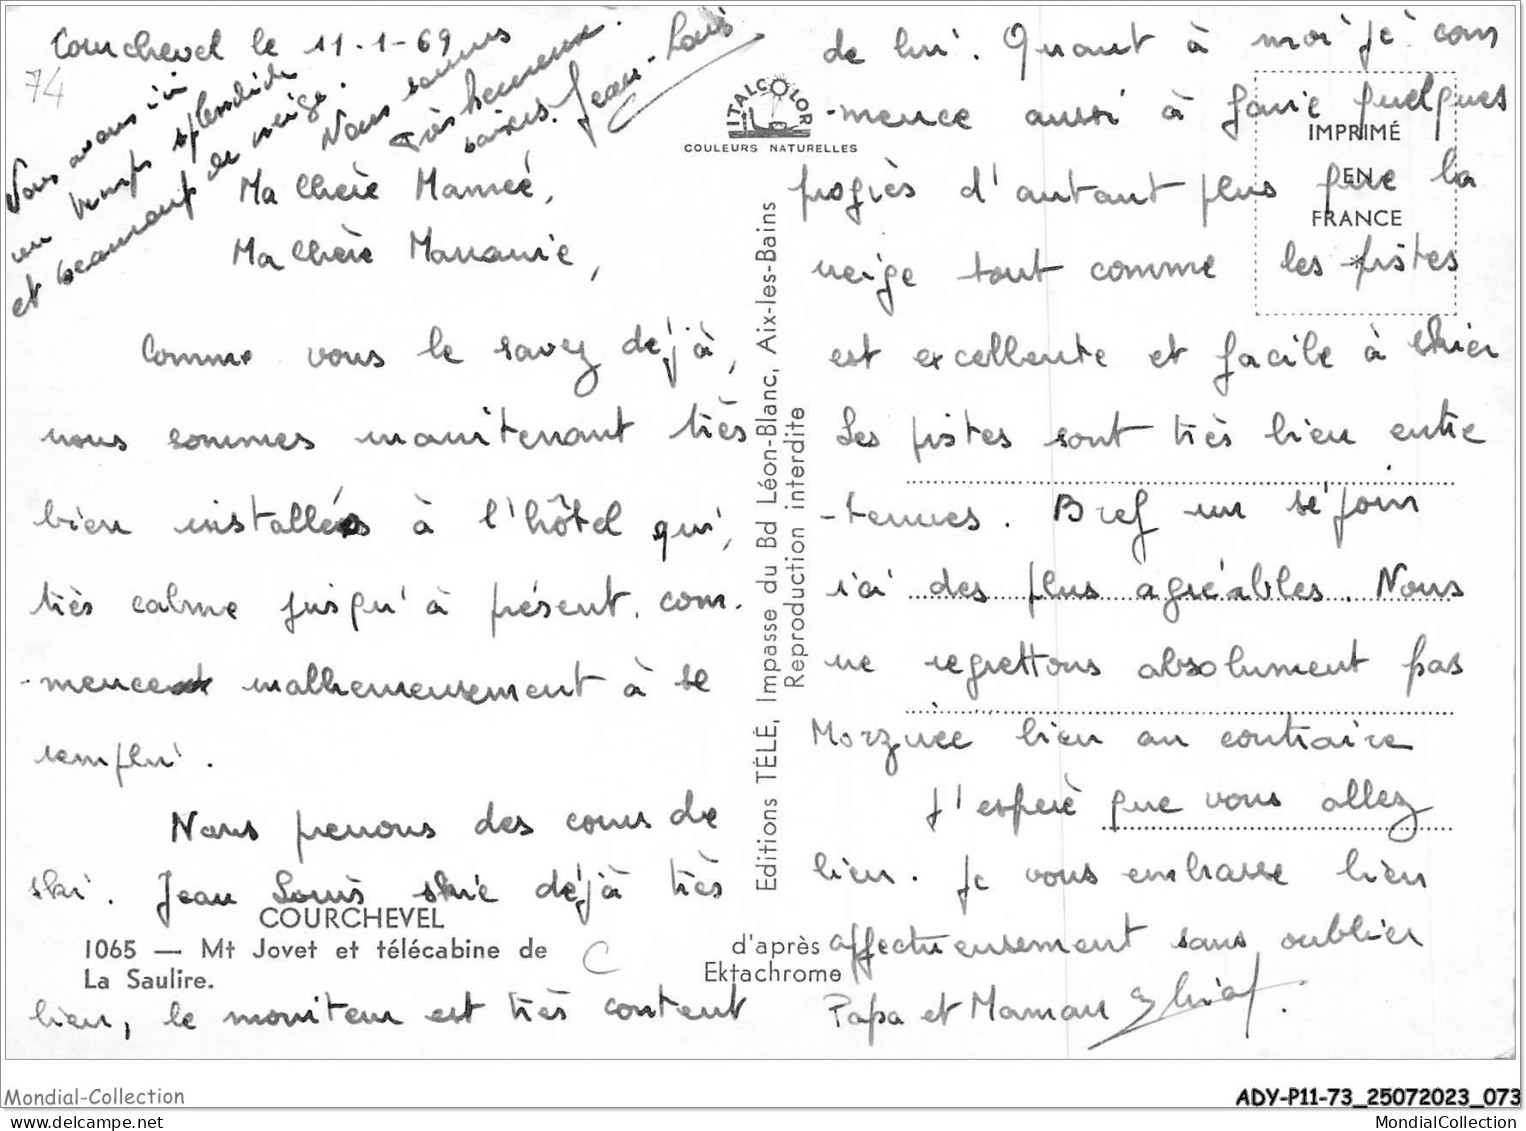 Courchevel le 11-1-69
74
Nous avons ici
un temps splendide
et beaucoup de neige.
Nous sommes
très heureux.
Jean-Louis
Ma chère Mamée,
Ma chère Mananie,
Comme vous le savez déjà,
nous sommes maintenant très
bien installés à l'hôtel qui,
très calme jusqu'à présent, com-
-mence malheureusement à se
remplir.
Nous prenons des cours de
ski. Jean Louis skie déjà très
COURCHEVEL
1065 — Mt Jovet et télécabine de
La Saulire.
bien, le moniteur est très content
ITALCOLOR
COULEURS NATURELLES
Editions TÉLÉ, Impasse du Bd Léon-Blanc, Aix-les-Bains
Reproduction interdite
d'après
Ektachrome
IMPRIMÉ
EN
FRANCE
de lui. Quant à moi je com
-mence aussi à faire quelques
progrès d'autant plus que la
neige tout comme les pistes
est excellente et facile à skier
Les pistes sont très bien entre
-tenues. Bref un séjour
ici des plus agréables. Nous
ne regrettons absolument pas
Morzine bien au contraire
J'espère que vous allez
bien. Je vous embrasse bien
affectueusement sans oublier
Papa et Maman
Mondial-Collection
ADY-P11-73_25072023_073
MondialCollection